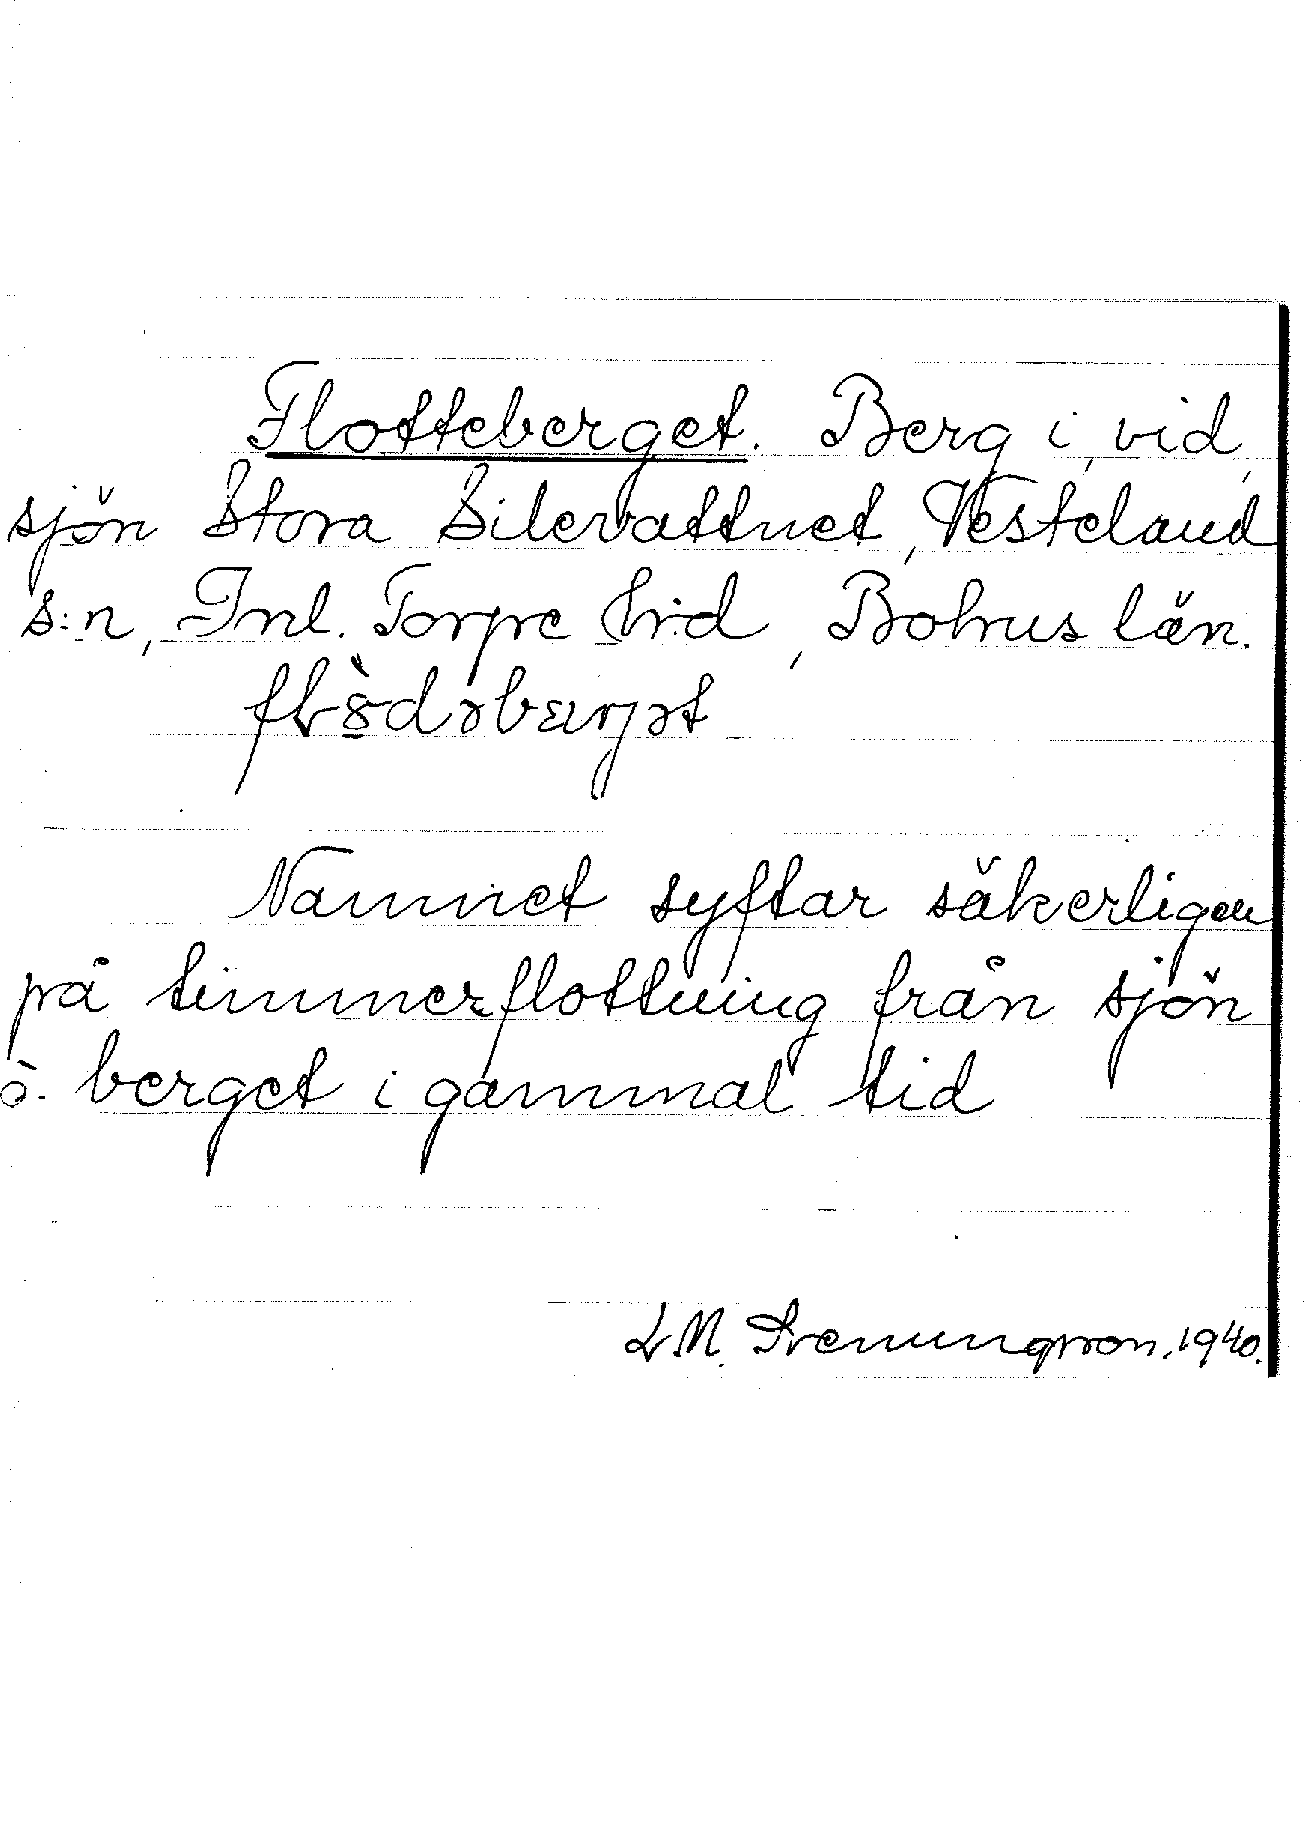 Flotteberget. Berg i, vid,
sjön Stora Silevattnet, Vesteland
s:n, Inl. Torpe hrd, Bohus län.
Namnet syftar säkerligen
på timmerflottning från sjön
o. berget i gammal tid
L.M. Svenungsson. 1940.